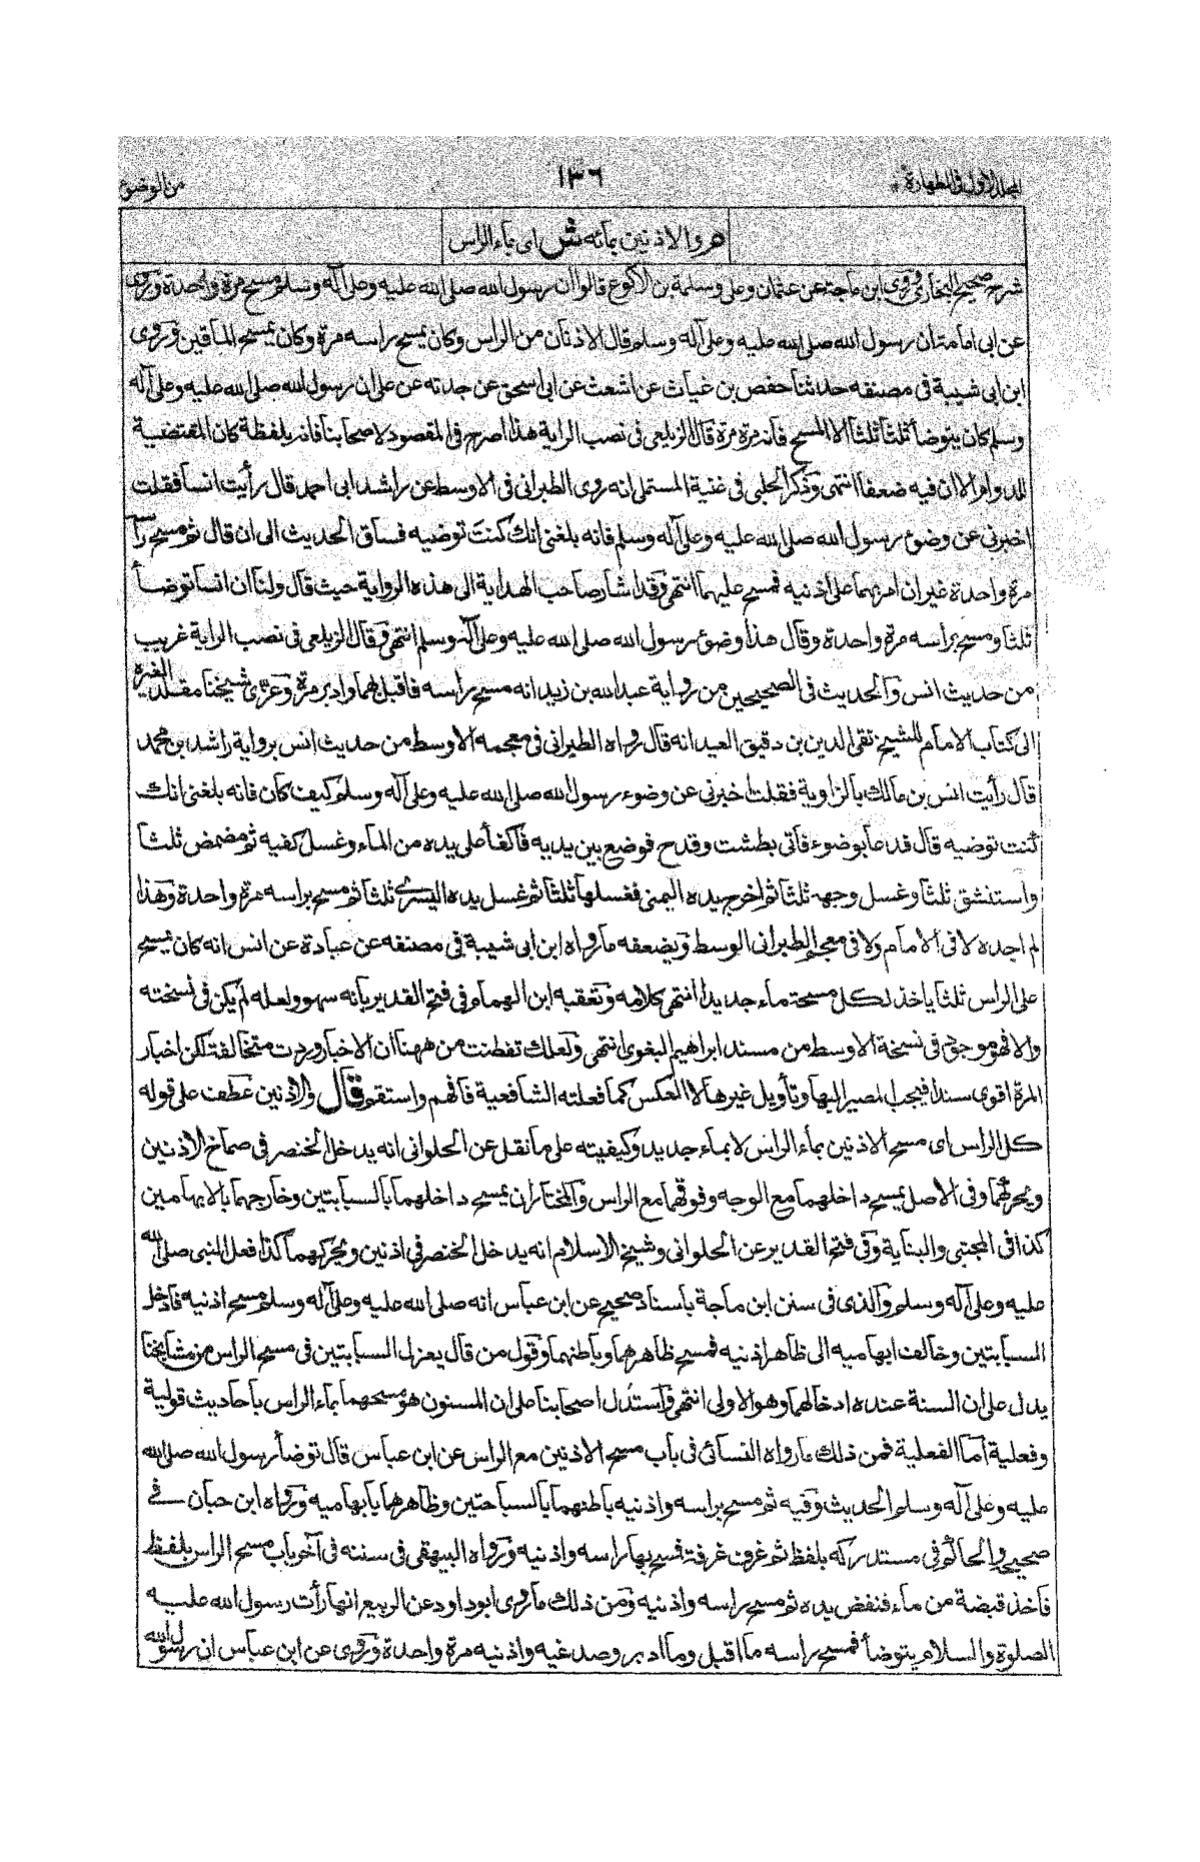 المجلد الاول فى الطهارة
١٣٦
من الوضوء
هر والاذنين بمائه ش اى بماء الراس
شرح صحيح البخارى وروى ابن ماجة عن عثمان وعلى وسلمة بن الاكوع قالوا ان رسول الله صلى الله عليه وعلى آله وسلم مسح مرة واحدة وروى
عن ابى امامة ان رسول الله صلى الله عليه وعلى آله وسلم قال الاذنان من الراس وكان يمسح راسه مرة وكان يمسح الماقين وروى
ابن ابى شيبة فى مصنفه حدثنا حفص بن غياث عن اشعث عن ابى اسحق عن جدته عن على ان رسول الله صلى الله عليه وعلى آله
وسلم كان يتوضأ ثلثا ثلثا الا المسح فانه مرة مرة قال الزيلعى فى نصب الراية هذا اصرح فى المقصود لاصحابنا فانه بلفظة كان المقتضية
للدوام الا ان فيه ضعفا انتهى وذكر الحلبى فى غنية المستملى انه روى الطبرانى فى الاوسط عن راشد ابى احمد قال رأيت انسا فقلت
اخبرنى عن وضوء رسول الله صلى الله عليه وعلى آله وسلم فانه بلغنى انك كنت توضيه فساق الحديث الى ان قال ثم مسح رأسه
مرة واحدة غير ان امرهما على اذنيه فمسح عليهما انتهى وقد اشار صاحب الهداية الى هذه الرواية حيث قال ولنا ان انسا توضأ
ثلثا ومسح براسه مرة واحدة وقال هذا وضوء رسول الله صلى الله عليه وعلى آله وسلم انتهى وقال الزيلعى فى نصب الراية غريب
من حديث انس والحديث فى الصحيحين من رواية عبد الله بن زيد انه مسح راسه فاقبل بهما وادبر مرة وعزى شيخنا مقلدا لغيره
الى كتاب الامام للشيخ تقى الدين بن دقيق العيد انه قال رواه الطبرانى فى معجمه الاوسط من حديث انس برواية راشد بن محمد
قال رأيت انس بن مالك بالزاوية فقلت اخبرنى عن وضوء رسول الله صلى الله عليه وعلى آله وسلم كيف كان فانه بلغنى انك
كنت توضيه قال قدعا بوضوء فأتى بطشت وقدح فوضع بين يديه فاكفأ على يده من الماء وغسل كفيه ثم مضمض ثلثا
واستنشق ثلثا وغسل وجهه ثلثا ثم اخرج يده اليمنى فغسلها ثلثا ثم غسل يده اليسرى ثلثا ثم مسح براسه مرة واحدة وهذا
لم اجده لا فى الامام ولا فى معجم الطبرانى الوسط ويضعفه ما رواه ابن ابى شيبة فى مصنفه عن عبادة عن انس انه كان يمسح
على الراس ثلثا ياخذ لكل مسحة ماء جديدا انتهى كلامه وتعقبه ابن الهمام فى فتح القدير بانه سهو ولعله لم يكن فى نسخته
والا فهو موجود فى نسخة الاوسط من مسند ابراهيم البغوى انتهى ولعلك تفطنت من ههنا ان الاخبار وردت متخالفة لكن اخبار
المرة اقوى سندا فيجب المصير اليها وتأويل غيرها لا العكس كما فعلته الشافعية فافهم واستقم قال والاذنين عطف على قوله
كل الراس اى مسح الاذنين بماء الراس لا بماء جديد وكيفيته على ما نقل عن الحلوانى انه يدخل الخنصر فى صماخ الاذنين
ويحركهما وفى الاصل يمسح داخلهما مع الوجه وفوقهما مع الراس والمختار ان يمسح داخلهما بالسبابتين وخارجهما بالابهامين
كذا فى المجتبى والبناية وفى فتح القدير عن الحلوانى وشيخ الاسلام انه يدخل الخنصر فى اذنين ويحركهما كذا فعل النبى صلى الله
عليه وعلى آله وسلم والذى فى سنن ابن ماجة باسناد صحيح عن ابن عباس انه صلى الله عليه وعلى آله وسلم مسح اذنيه فادخل
السبابتين وخالف ابهاميه الى ظاهر اذنيه فمسح ظاهرهما وباطنهما وقول من قال يعزل السبابتين فى مسح الراس من مشايخنا
يدل على ان السنة عنده ادخالهما وهو الاولى انتهى واستدل اصحابنا على ان المسنون هو مسحهما بماء الراس باحاديث قولية
وفعلية اما الفعلية فمن ذلك ما رواه النسائى فى باب مسح الاذنين مع الراس عن ابن عباس قال توضأ رسول الله صلى الله
عليه وعلى آله وسلم الحديث وفيه ثم مسح براسه واذنيه باطنهما بالسباحتين وظاهرهما بابهاميه ورواه ابن حبان فى
صحيحه والحاكم فى مستدركه بلفظ ثم غرف غرفة فمسح بها راسه واذنيه ورواه البيهقى فى سننه فى آخر باب مسح الراس بلفظ
فاخذ قبضة من ماء فنفض يده ثم مسح راسه واذنيه ومن ذلك ما روى ابو داود عن الربيع انها رأت رسول الله عليه
الصلوة والسلام يتوضأ فمسح راسه ما اقبل وما ادبر وصدغيه واذنيه مرة واحدة وروى عن ابن عباس ان رسول الله